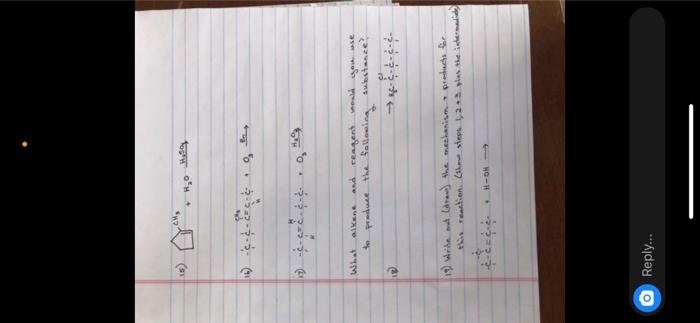 15) CH3
+ H2O H2SO4
16) -C-C-C=C-C- + O3 Zn
CH3
H
17) -C-C=C-C-C- + O3 H2O2
H
H
What alkene and reagent would you use
to produce the following substance?
18) → -C-C-C-C-
19) Write out (draw) the mechanism + products for
this reaction. (Show steps 1, 2 + 3 plus the intermediates)
-C-C=C-C- + H-OH →
Reply...